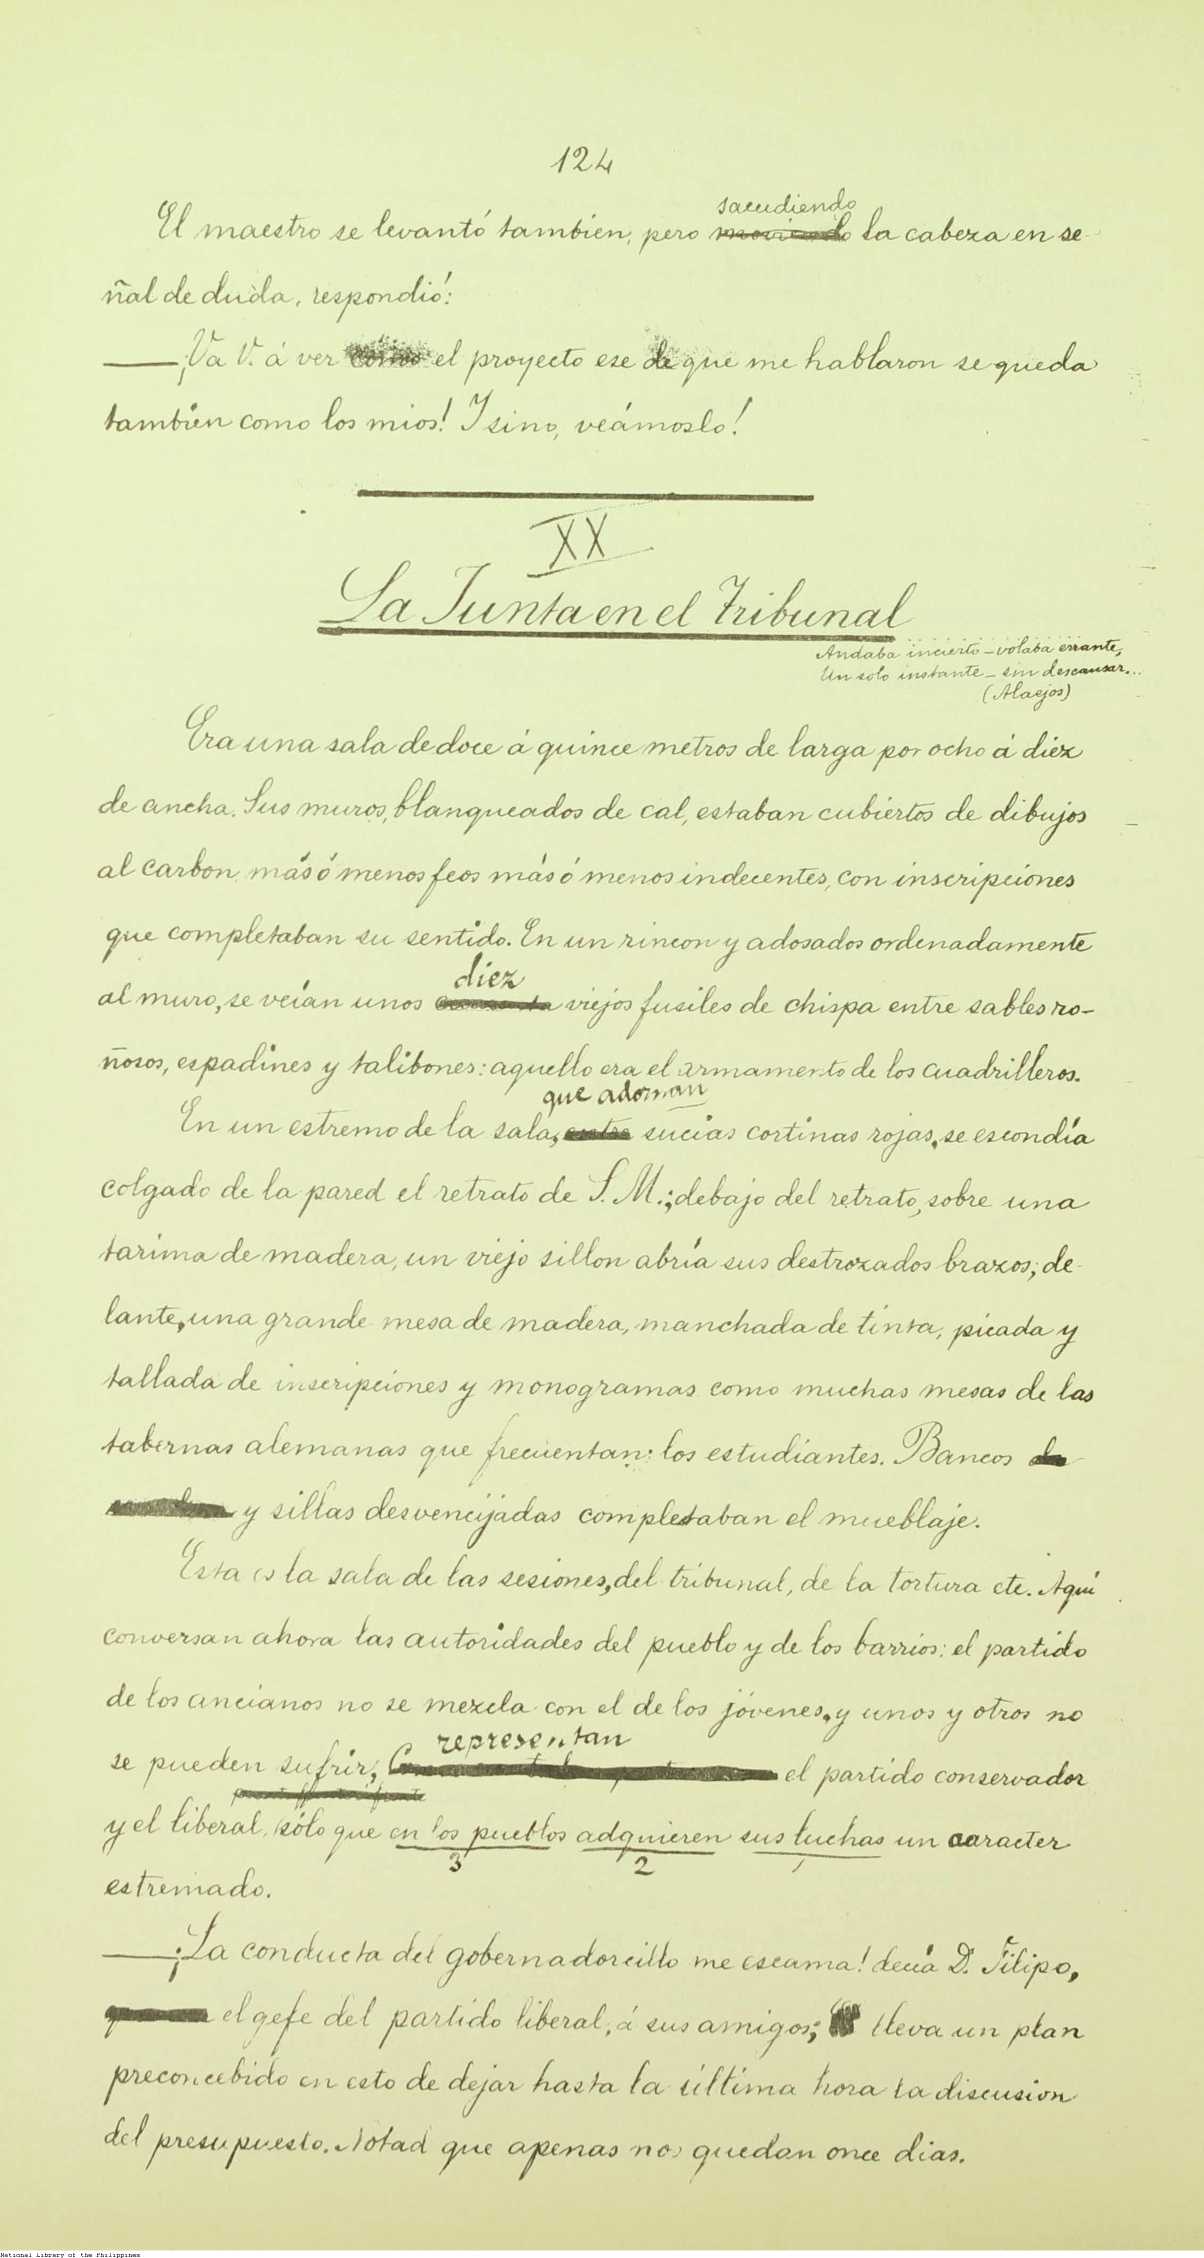 124
sacudiendo
El maestro se levantó tambien, pero la cabeza en se-
ñal de duda, respondió:
—¡Va V. á ver cómo el proyecto ese de que me hablaron se queda
tambien como los mios! I sino, veámoslo!
XX
La Junta en el Tribunal
Andaba incierto — volaba errante,
Un solo instante — sin descansar...
(Alaejos)
Era una sala de doce á quince metros de larga por ocho á diez
de ancha. Sus muros, blanqueados de cal, estaban cubiertos de dibujos
al carbon más ó menos feos más ó menos indecentes, con inscripciones
que completaban su sentido. En un rincon y adosados ordenadamente
diez
al muro, se veían unos viejos fusiles de chispa entre sables ro-
ñosos, espadines y talibones: aquello era el armamento de los cuadrilleros.
que adornan
En un estremo de la sala, entre sucias cortinas rojas, se escondía
colgado de la pared el retrato de S. M.; debajo del retrato, sobre una
tarima de madera, un viejo sillon abría sus destrozados brazos; de-
lante, una grande mesa de madera, manchada de tinta, picada y
tallada de inscripciones y monogramas como muchas mesas de las
tabernas alemanas que frecuentan los estudiantes. Bancos de
y sillas desvencijadas completaban el mueblaje.
Esta es la sala de las sesiones, del tribunal, de la tortura etc. Aquí
conversan ahora las autoridades del pueblo y de los barrios: el partido
de los ancianos no se mezcla con el de los jóvenes, y unos y otros no
representan
se pueden sufrir; el partido conservador
y el liberal, sólo que en los pueblos adquieren sus luchas un caracter
3 2 1
estremado.
—¡La conducta del gobernadorcillo me escama! decía D. Filipo,
el gefe del partido liberal, á sus amigos; lleva un plan
preconcebido en esto de dejar hasta la última hora la discusion
del presupuesto. Notad que apenas nos quedan once dias.
National Library of the Philippines